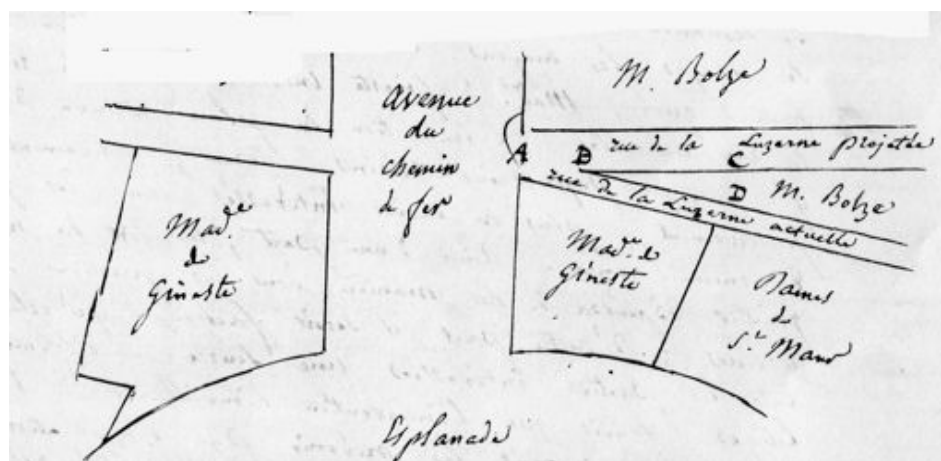 M. Bolze
avenue
du
chemin
de fer
rue de la Luzerne projetée
A
B
C
D
M. Bolze
rue de la Luzerne actuelle
Mad.e
de
Gineste
Mad.e de
Gineste
Dames
de
St. Maur
Esplanade